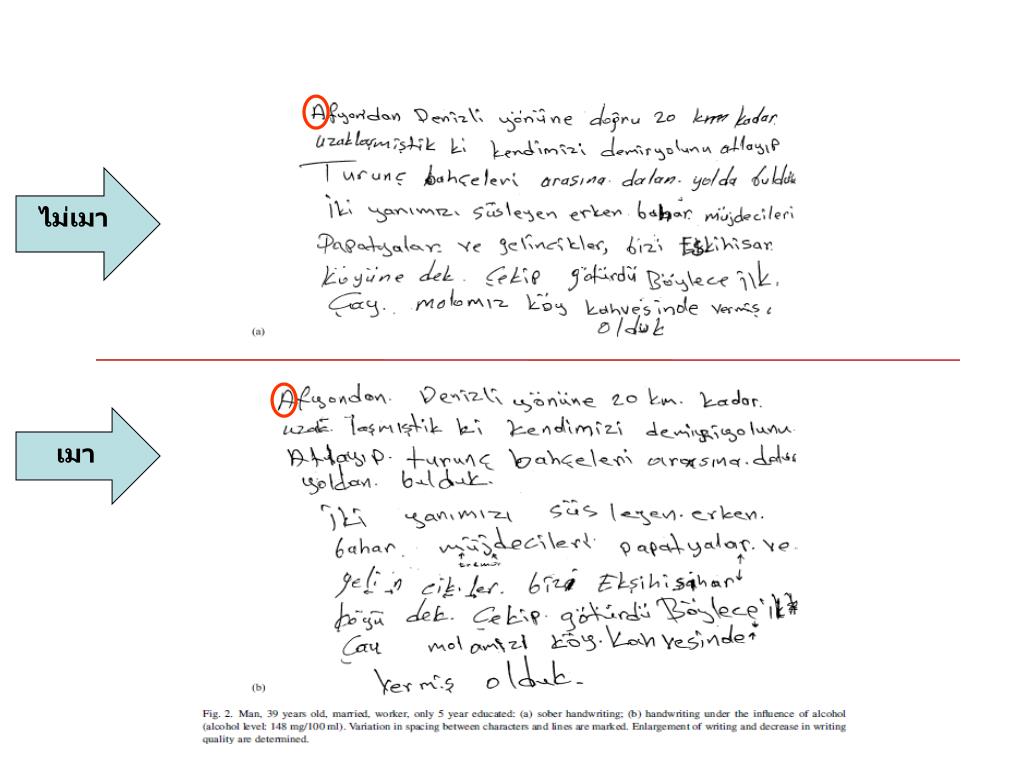 Afyondan Denizli yönüne doğru 20 km kadar
uzaklaşmıştik ki kendimizi demiryolunu atlayıp
Turunç bahçeleri arasına. dalan. yolda bulduk
ไม่เมา
İki yanımızı süsleyen erken bahar müjdecileri
Papatyalar. ve gelincikler, bizi Eskihisar.
köyüne dek. Çekip götürdü Böylece ilk.
Çay. molamız köy kahvesinde vermiş
olduk
(a)
Afyondan. Denizli yönüne 20 km. kadar.
uzak. laşmıştik ki kendimizi
Atlayıp. turunç bahçeleri arasına.
เมา
yoldan. bulduk.
İki yanımızı süs leyen. erken.
bahar. müjdecileri papatyalar. ve.
tremor
gelin cik.ler. bizi Ekşihisahar
köyü dek. Çekip. götürdü Böylece ilk
Çay molamızı köy. kahvesinde
vermiş olduk.
(b)
Fig. 2. Man, 39 years old, married, worker, only 5 year educated: (a) sober handwriting; (b) handwriting under the influence of alcohol
(alcohol level: 148 mg/100 ml). Variation in spacing between characters and lines are marked. Enlargement of writing and decrease in writing
quality are determined.